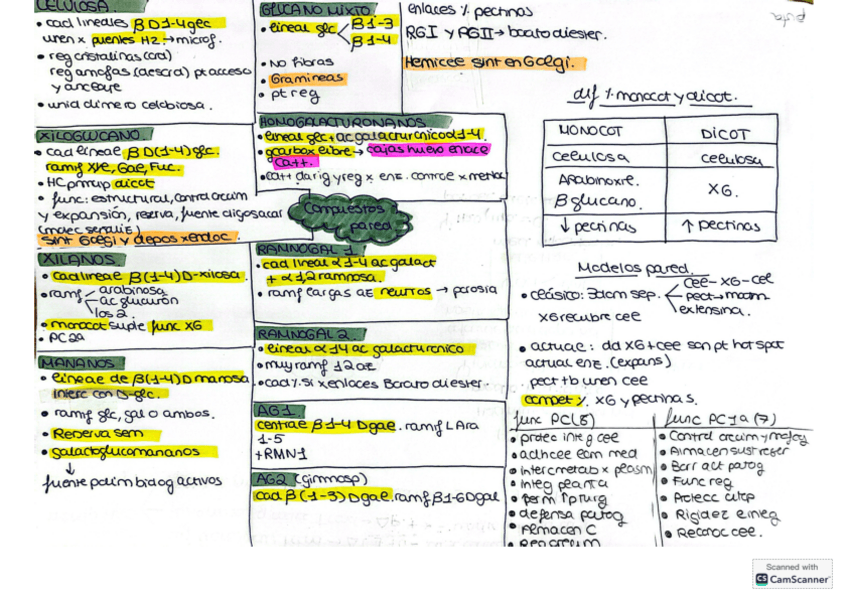 CELULOSA.
• cad lineales βD1-4glc
unen x puentes H2. → microf.
• reg cristalinas (ord)
reg amorfas (desord) pt acceso
y anclaje
• unid dimero celobiosa.
XILOGLUCANO.
• cad lineal βD(1-4)glc.
ramif Xyl, Gal, Fuc.
• HC princip dicot
• func: estructural, control crecim
y expansión, reserva, fuente oligosacar
sint Golgi y depos x endoc.
XILANOS
• cad lineal β(1-4)D-xilosa.
• ramif arabinosa
ac glucurón
los 2.
• monocot suple func XG
• PC2ª
MANANOS
• lineal de β(1-4)D manosa
interc con D-glc.
• ramif glc, gal o ambos.
• Reserva sem
• galactoglucomananos
↓
fuente polim biolog activos
GLUCANO MIXTO
• lineal glc β1-3
β1-4
• No fibras
• Gramineas
• pt reg
HOMOGALACTURONANOS
• lineal glc+ac galacturonico α1-4.
• gcarbox libre → cajas huevo enlace
Ca++.
• Ca++ da rig y reg x enz. control x metilac
Compuestos
pared
RAMNOGAL 1
• cad lineal α1-4 ac galact
+ α1,2 ramnosa.
• ramif cargas al neutros → porosid
RAMNOGAL 2.
• lineal α14 ac galacturonico
• muy ramif 12 al
• cad %. si x enlaces Borato diester.
AG1
central β1-4 Dgal. ramif L Ara
1-5
+RMN1
AG2 (gimnosp)
cad β(1-3)Dgal. ramif β1-6Dgal
enlaces %. pectinas
RGI y RGII → borato diester.
Hemicel sint en Golgi.
dif %. monocot y dicot.
MONOCOT DICOT
celulosa celulosa
Arabinoxil.
β glucano. XG.
↓ pectinas ↑ pectinas
Modelos pared.
• clásico: 3dom sep. cel-XG-cel
pect→
extensina.
XG recubre cel
• actual: dd XG+cel son pt hot spot
actual enz. (expans)
pect tb unen cel
compet %. XG y pectinas.
func PC(8)
• protec integ cel
• adhcel lam med
• intercmetab x plasm
• integ planta
• perm
• defensa patog
• Almacen C
func PC1ª(7)
• Control crecim y morfog
• Almacen sust reser
• Barr act patog
• Func reg
• Protecc citop
• Rigidez e integ
• Reconoc cel.
Scanned with
CS CamScanner